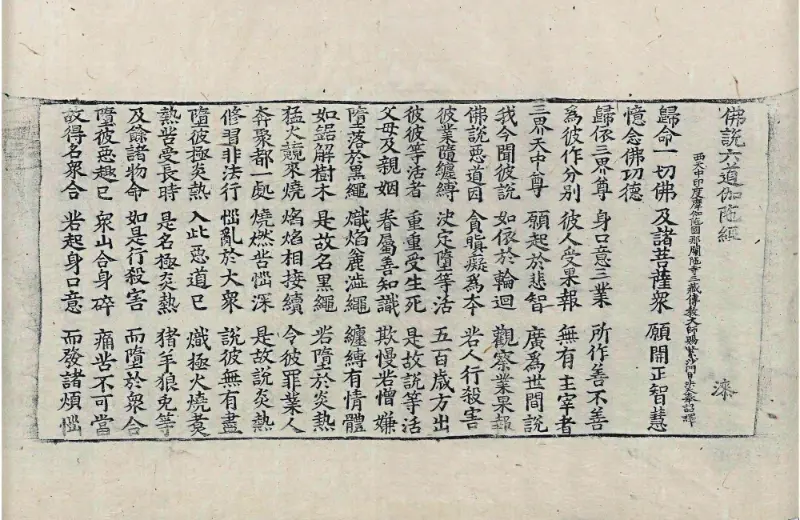 佛說六道伽陀經 漆
西天中印度摩伽陀國那爛陀寺三藏傳教大師賜紫沙門臣法天奉詔譯
歸命一切佛 及諸菩薩衆 願開正智慧
憶念佛功德
歸依三界尊 身口意三業 所作善不善
爲彼作分別 彼人受果報 無有主宰者
三界天中尊 願起於悲智 廣爲世間說
我今聞彼說 如依於輪迴 觀察業果報
佛說惡道因 貪瞋癡爲本 若人行殺害
彼業隨纏縛 決定墮等活 五百歲方出
彼彼等活者 重重受生死 是故說等活
父母及親姻 眷屬善知識 欺慢若憎嫌
墮落於黑繩 熾焰麁澁繩 纏縛有情體
如鋸解樹木 是故名黑繩 若墮於炎熱
猛火競來燒 焰焰相接續 令彼罪業人
奔聚都一處 燒燃苦惱深 是故說炎熱
修習非法行 惱亂於大衆 說彼無有盡
墮彼極炎熱 入此惡道已 熾極火燒煑
熱苦受長時 是名極炎熱 猪羊狼兎等
及餘諸物命 如是行殺害 而墮於衆合
墮彼惡趣已 衆山合身碎 痛苦不可當
故得名衆合 若起身口意 而發諸煩惱